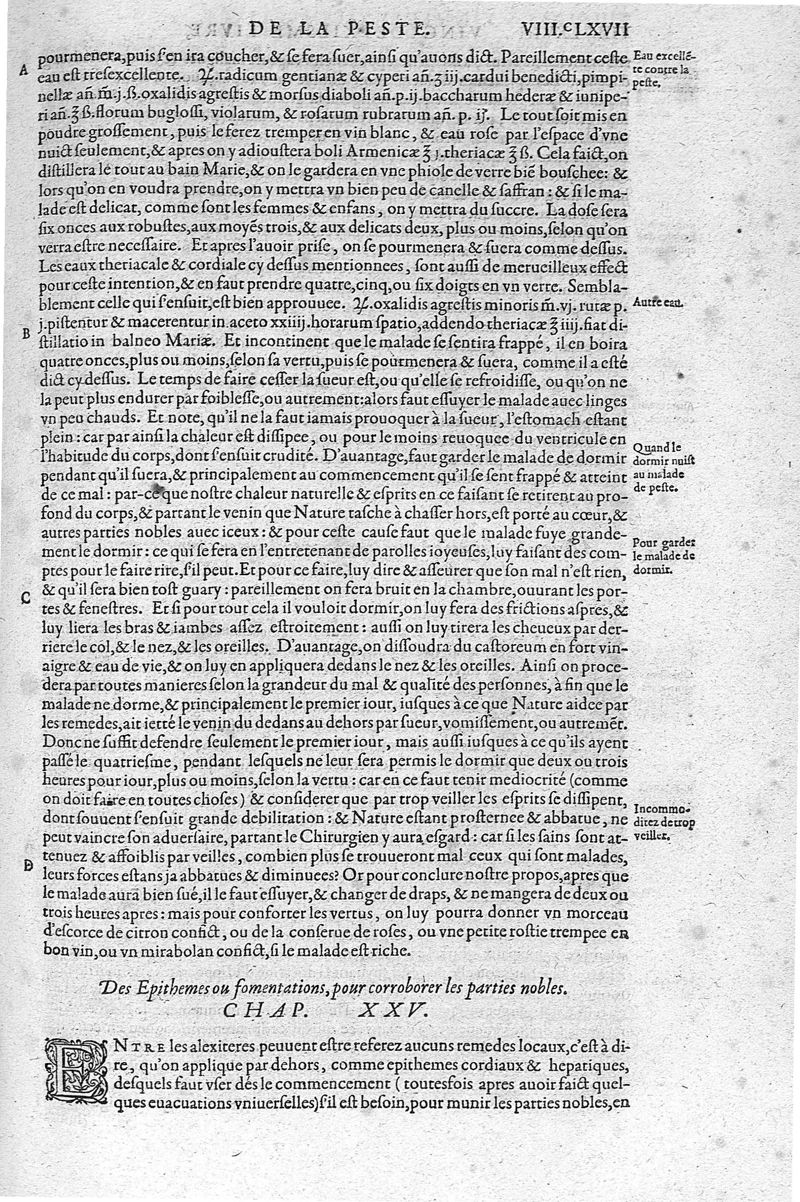 DE LA PESTE. VIII.ᶜLXVII
pourmenera, puis ſ'en ira coucher, & ſe fera ſuer, ainſi qu'auons dict. Pareillement ceſte
eau eſt treſexcellente. ♃. radicum gentianæ & cyperi añ. ʒ iij. cardui benedicti, pimpi-
nellæ añ. m̃. j. ß. oxalidis agreſtis & morſus diaboli añ. p. ij. baccharum hederæ & iunipe-
ri añ. ℥ ß. florum bugloſſi, violarum, & roſarum rubrarum añ. p. ij. Le tout ſoit mis en
poudre groſſement, puis le ferez tremper en vin blanc, & eau roſe par l'eſpace d'vne
nuict ſeulement, & apres on y adiouſtera boli Armenicæ ℥ j. theriacæ ℥ ß. Cela faict, on
diſtillera le tout au bain Marie, & on le gardera en vne phiole de verre biẽ bouſchee: &
lors qu'on en voudra prendre, on y mettra vn bien peu de canelle & ſaffran: & ſi le ma-
lade eſt delicat, comme ſont les femmes & enfans, on y mettra du ſuccre. La doſe ſera
ſix onces aux robuſtes, aux moyẽs trois, & aux delicats deux, plus ou moins, ſelon qu'on
verra eſtre neceſſaire. Et apres l'auoir priſe, on ſe pourmenera & ſuera comme deſſus.
Les eaux theriacale & cordiale cy deſſus mentionnees, ſont auſſi de merueilleux effect
pour ceſte intention, & en faut prendre quatre, cinq, ou ſix doigts en vn verre. Sembla-
blement celle qui ſ'enſuit, eſt bien approuuee. ♃. oxalidis agreſtis minoris m̃. vj. rutæ p.
j. piſtentur & macerentur in aceto xxiiij. horarum ſpatio, addendo theriacæ ℥ iiij. fiat di-
ſtillatio in balneo Mariæ. Et incontinent que le malade ſe ſentira frappé, il en boira
quatre onces, plus ou moins, ſelon ſa vertu, puis ſe pourmenera & ſuera, comme il a eſté
dict cy deſſus. Le temps de faire ceſſer la ſueur eſt, ou qu'elle ſe refroidiſſe, ou qu'on ne
la peut plus endurer par foibleſſe, ou autrement: alors faut eſſuyer le malade auec linges
vn peu chauds. Et note, qu'il ne la faut iamais prouoquer à la ſueur, l'eſtomach eſtant
plein: car par ainſi la chaleur eſt diſſipee, ou pour le moins reuoquee du ventricule en
l'habitude du corps, dont ſ'enſuit crudité. D'auantage, faut garder le malade de dormir
pendant qu'il ſuera, & principalement au commencement qu'il ſe ſent frappé & atteint
de ce mal: par-ce que noſtre chaleur naturelle & eſprits en ce faiſant ſe retirent au pro-
fond du corps, & partant le venin que Nature taſche à chaſſer hors, eſt porté au cœur, &
autres parties nobles auec iceux: & pour ceſte cauſe faut que le malade fuye grande-
ment le dormir: ce qui ſe fera en l'entretenant de parolles ioyeuſes, luy faiſant des com-
ptes pour le faire rire, ſ'il peut. Et pour ce faire, luy dire & aſſeurer que ſon mal n'eſt rien,
& qu'il ſera bien toſt guary: pareillement on fera bruit en la chambre, ouurant les por-
tes & feneſtres. Et ſi pour tout cela il vouloit dormir, on luy fera des frictions aſpres, &
luy liera les bras & iambes aſſez eſtroitement: auſſi on luy tirera les cheueux par der-
riere le col, & le nez, & les oreilles. D'auantage, on diſſoudra du caſtoreum en fort vin-
aigre & eau de vie, & on luy en appliquera dedans le nez & les oreilles. Ainſi on proce-
dera par toutes manieres ſelon la grandeur du mal & qualité des perſonnes, à fin que le
malade ne dorme, & principalement le premier iour, iuſques à ce que Nature aidee par
les remedes, ait ietté le venin du dedans au dehors par ſueur, vomiſſement, ou autremẽt.
Donc ne ſuffit defendre ſeulement le premier iour, mais auſſi iuſques à ce qu'ils ayent
paſſé le quatrieſme, pendant leſquels ne leur ſera permis le dormir que deux ou trois
heures pour iour, plus ou moins, ſelon la vertu: car en ce faut tenir mediocrité (comme
on doit faire en toutes choſes) & conſiderer que par trop veiller les eſprits ſe diſſipent,
dont ſouuent ſ'enſuit grande debilitation: & Nature eſtant proſternee & abbatue, ne
peut vaincre ſon aduerſaire, partant le Chirurgien y aura eſgard: car ſi les ſains ſont at-
tenuez & affoiblis par veilles, combien plus ſe trouueront mal ceux qui ſont malades,
leurs forces eſtans ja abbatues & diminuees? Or pour conclure noſtre propos, apres que
le malade aura bien ſué, il le faut eſſuyer, & changer de draps, & ne mangera de deux ou
trois heures apres: mais pour conforter les vertus, on luy pourra donner vn morceau
d'eſcorce de citron confict, ou de la conſerue de roſes, ou vne petite roſtie trempee en
bon vin, ou vn mirabolan confict, ſi le malade eſt riche.
Des Epithemes ou fomentations, pour corroborer les parties nobles.
CHAP. XXV.
ENTRE les alexiteres peuuent eſtre referez aucuns remedes locaux, c'eſt à di-
re, qu'on applique par dehors, comme epithemes cordiaux & hepatiques,
deſquels faut vſer dés le commencement (toutesfois apres auoir faict quel-
ques euacuations vniuerſelles) ſ'il eſt beſoin, pour munir les parties nobles, en
A
B
C
D
Eau excellẽ-
te contre la
peſte.
Autre eau.
Quand le
dormir nuiſt
au malade
de peſte.
Pour garder
le malade de
dormir.
Incommo-
ditez de trop
veiller.